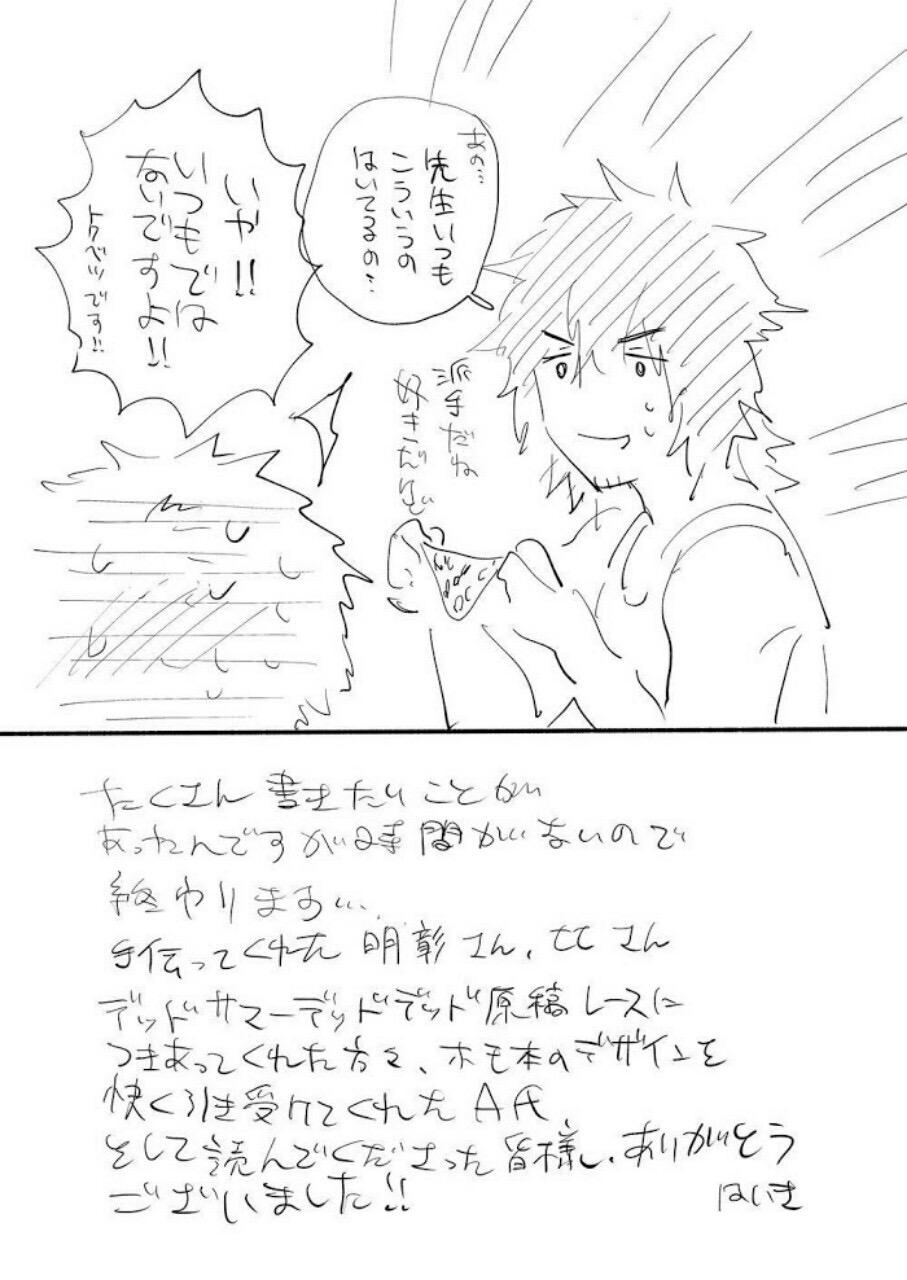 あの…
先生いつも
こういうの
はいてるの…
いや!!
いつもでは
ないですよ!!
トクベツです!!
派手だね
好きだけど
たくさん書きたいことが
あったんですが時間がないので
終わります…
手伝ってくれた明彰さん、ヒヒさん
デッドサマーデッドデッド原稿レースに
つきあってくれた方々、ホモ本のデザインを
快く引き受けてくれたA氏
そして読んでくださった皆様も、ありがとう
ございました!!
はいき